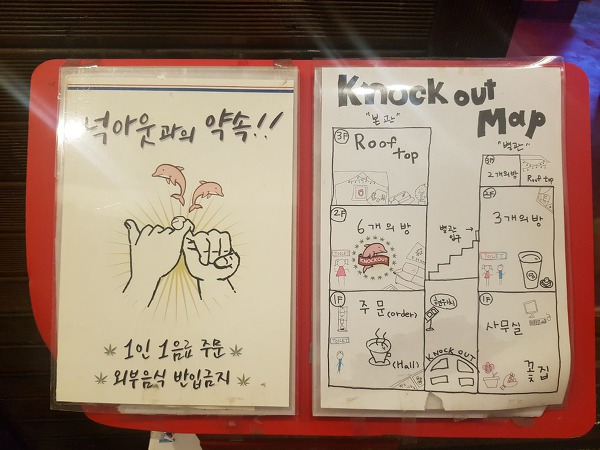 넉아웃과의 약속!!
1인 1음료 주문
외부음식 반입금지
Knock out
Map
"본관"
3F
Roof
top
2F
6개의방
KNOCKOUT
1F
주문(order)
(Hall)
TOILET
별관
입구
현위치
KNOCK OUT
"별관"
2개의방
Roof top
2F
3개의방
TOILET
1F
사무실
꽃집